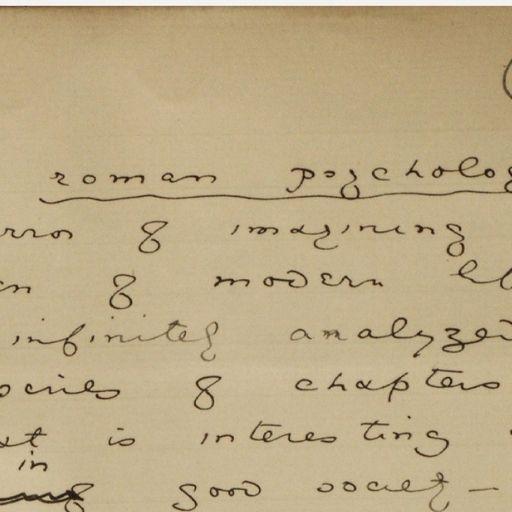 roman psycholog
error of imagining
n of modern
infinitely analyzed
series of chapters
at is interesting
in
good society —